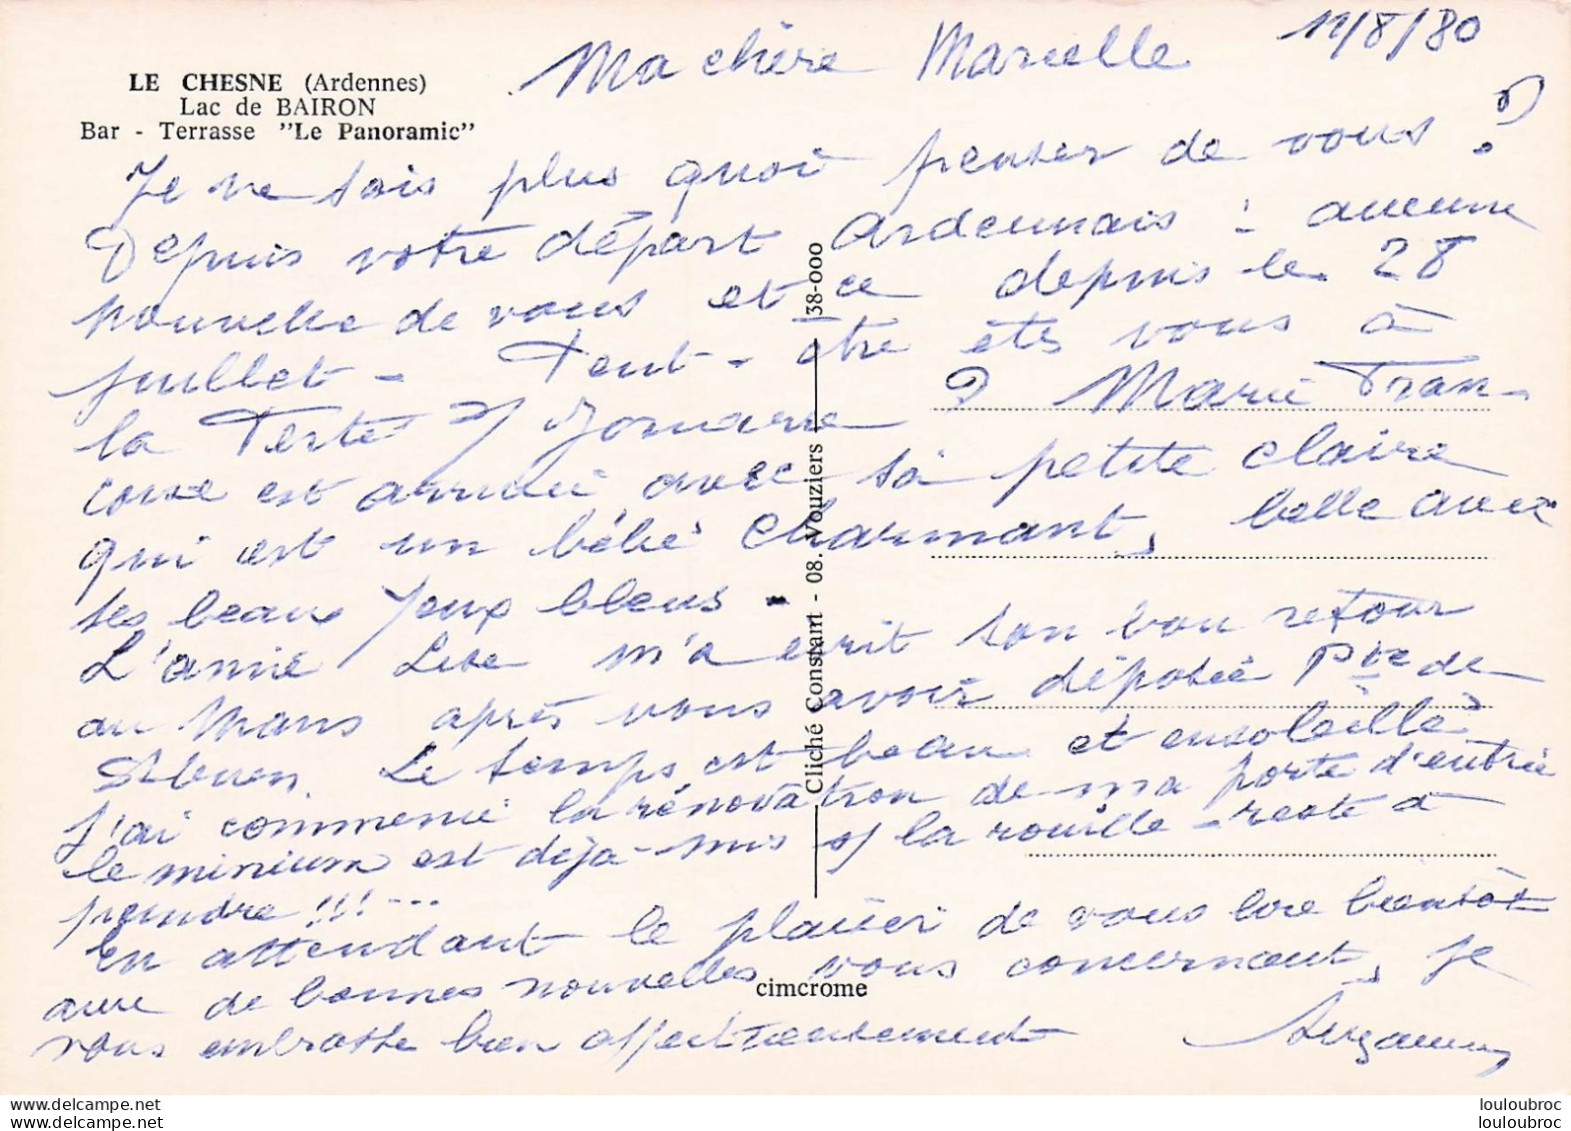 11/8/80
Ma chère Marcelle
LE CHESNE (Ardennes)
Lac de BAIRON
Bar - Terrasse "Le Panoramic"
Je ne sais plus quoi penser de vous ?
Depuis votre départ Ardennais : aucune
nouvelle de vous et ce depuis le 28
juillet - Peut-être êtes vous à
la Ferté s/ Jouarre ? Marie Fran-
coise est arrivée avec sa petite Claire
qui est un bébé charmant, belle avec
ses beaux yeux bleus -
L'amie Lise m'a écrit son bon retour
au Mans après vous avoir déposée Pte de
St Ouen. Le temps est beau et ensoleillé
J'ai commencé la rénovation de ma porte d'entrée
le minium est déjà mis s/ la rouille - reste à
peindre !!! ...
En attendant le plaisir de vous lire bientôt
avec de bonnes nouvelles vous concernant, je
vous embrasse bien affectueusement
Suzanne
Cliché Constant - 08. Vouziers
38-000
cimcrome
louloubroc
louloubroc